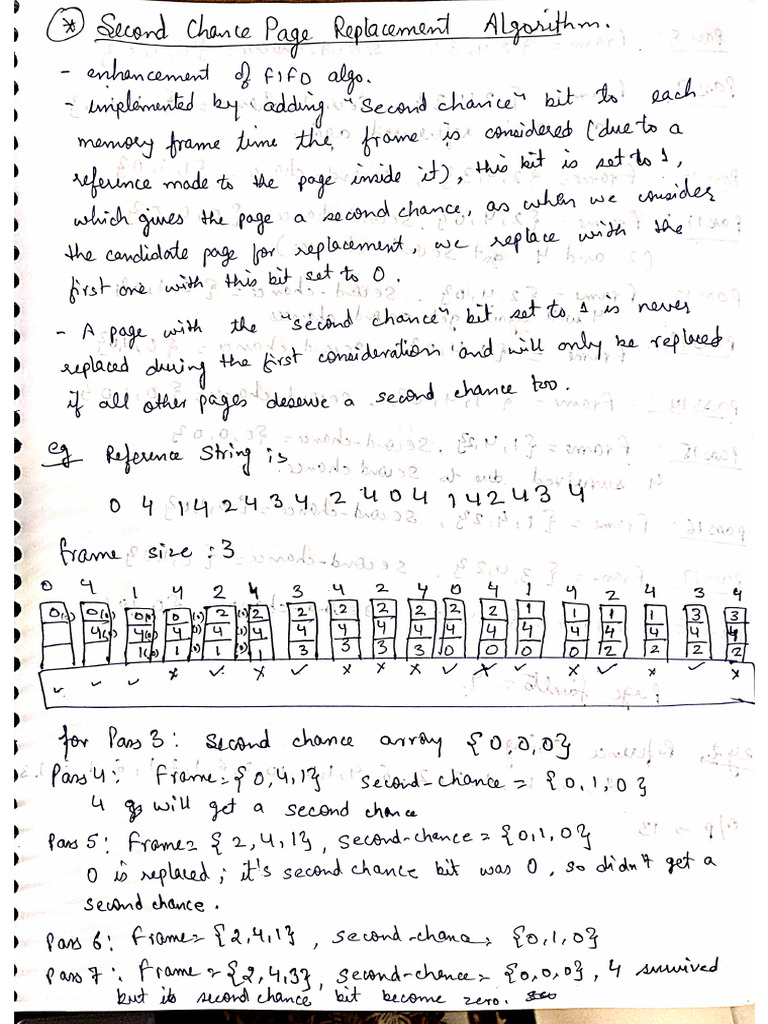 * Second Chance Page Replacement Algorithm.
- enhancement of FIFO algo.
- implemented by adding "second chance" bit to each
memory frame time the frame is considered (due to a
reference made to the page inside it), this bit is set to 1,
which gives the page a second chance, as when we consider
the candidate page for replacement, we replace with the
first one with this bit set to 0.
- A page with the "second chance" bit set to 1 is never
replaced during the first consideration and will only be replaced
if all other pages deserve a second chance too.
eg Reference String is
0 4 1 4 2 4 3 4 2 4 0 4 1 4 2 4 3 4
frame size : 3
0 4 1 4 2 4 3 4 2 4 0 4 1 4 2 4 3 4
0(0) 0(0) 0(0) 0(0) 2(0) 2 2 2 2 2 2 2 1 1 1 1 3 3
4(0) 4(0) 4(1) 4(1) 4 4 4 4 4 4 4 4 4 4 4 4 4
1(0) 1(0) 1(0) 1 3 3 3 3 0 0 0 0 2 2 2 2
✓ ✓ ✓ x ✓ x ✓ x x x ✓ x ✓ x ✓ x ✓ x
for Pass 3: Second chance array {0,0,0}
Pass 4: Frame={0,4,1} second-chance = {0,1,0}
4 will get a second chance
Pass 5: Frame= {2,4,1}, second-chance = {0,1,0}
0 is replaced; it's second chance bit was 0, so didn't get a
second chance.
Pass 6: frame= {2,4,1}, second-chance= {0,1,0}
Pass 7: Frame = {2,4,3}, second-chance= {0,0,0}, 4 survived
but its second chance bit become zero.